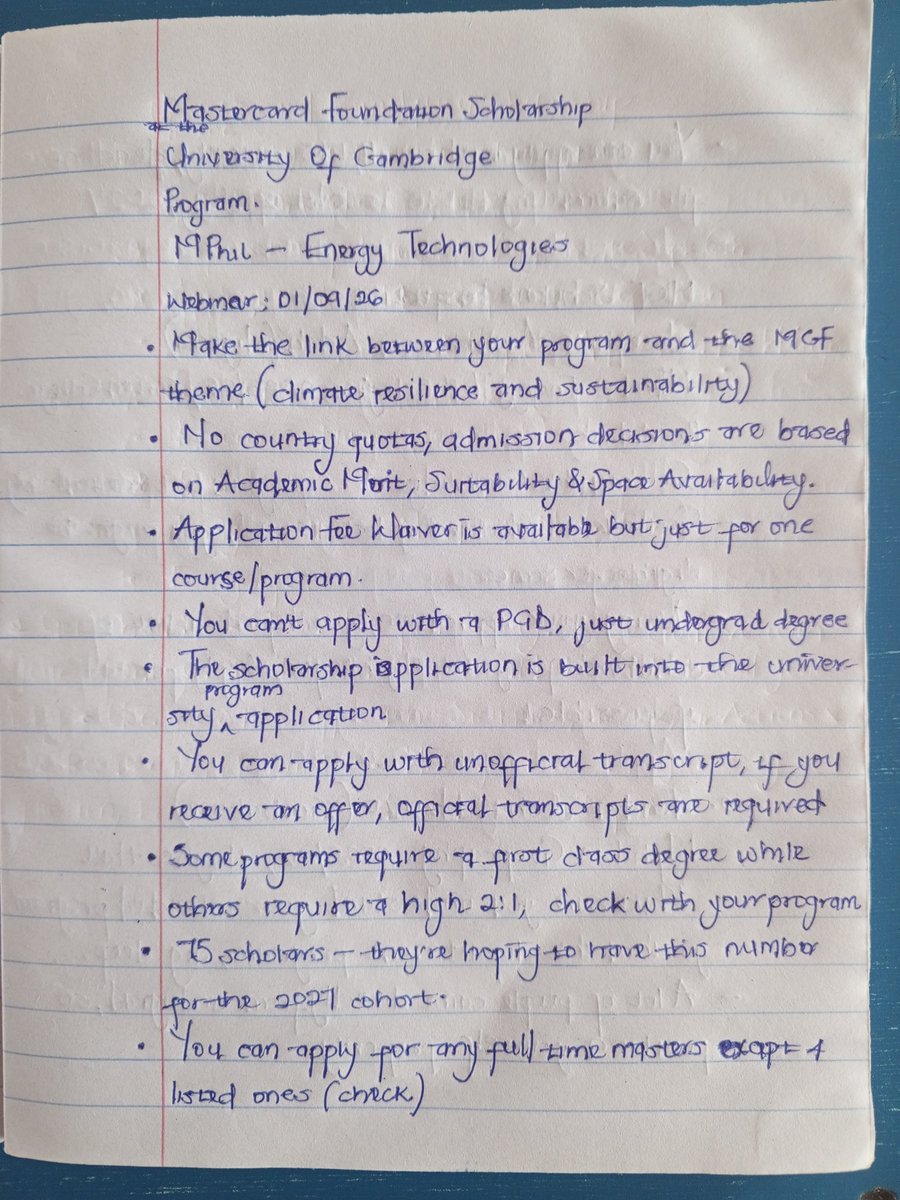 Mastercard Foundation Scholarship
at the
University Of Cambridge
Program.
MPhil - Energy Technologies
Webinar: 01/09/26
• Make the link between your program and the MCF
theme (climate resilience and sustainability)
• No country quotas, admission decisions are based
on Academic Merit, Suitability & Space Availability.
• Application Fee Waiver is available but just for one
course/program.
• You can't apply with a PGD, just undergrad degree
• The scholarship application is built into the univer-
program
sity ^ application
• You can apply with unofficial transcript, if you
receive an offer, official transcripts are required
• Some programs require a first class degree while
others require a high 2:1, check with your program
• 75 scholars - they're hoping to have this number
for the 2027 cohort.
• You can apply for any full time masters except 4
listed ones (check)